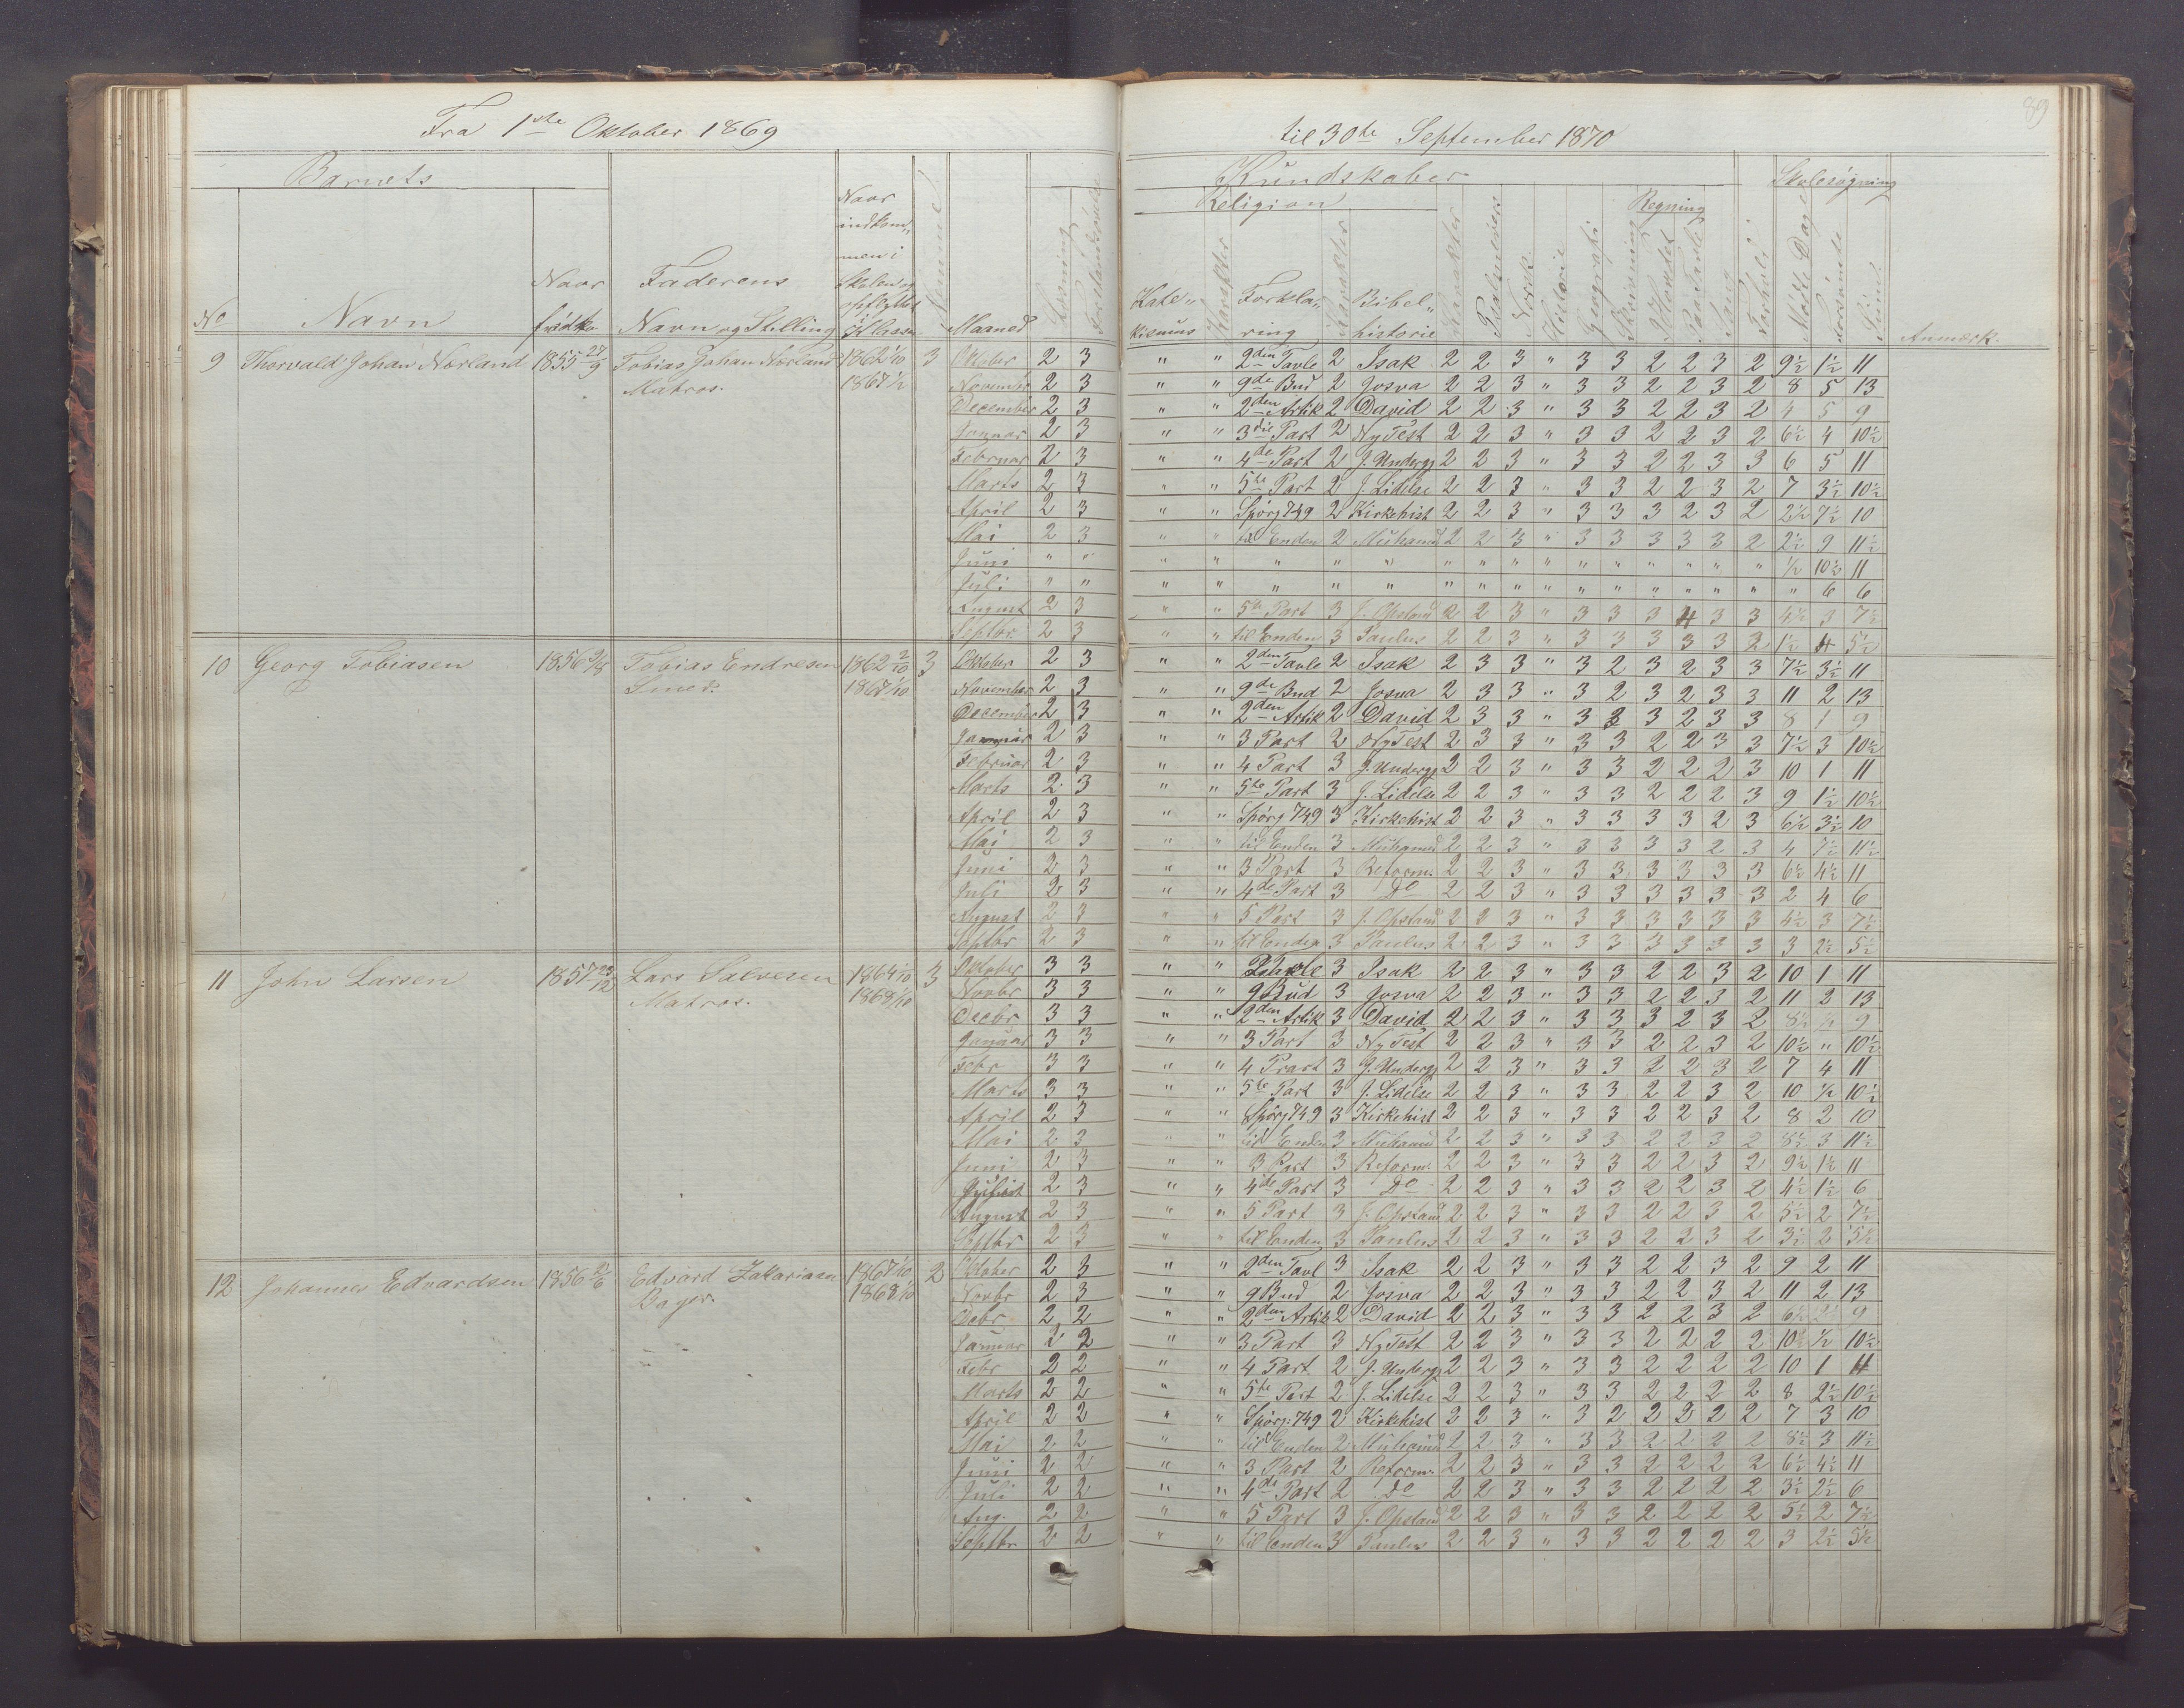 89
Fra 1ste Oktober 1869 til 30te September 1870
Barnets Kundskaber Skolesøgning
Religion Regning
No Navn Naar født Faderens Navn og Stilling Naar indkommen i Skolen og opflyttet i Klassen Maaned Læsning Katekismus Karakter Forklaring Karakter Bibelhistorie Karakter Norsk Historie Geografi Skrivning I Hovedet Paa Tavle Sang Forhold Mødte Dage Forsømte Sum Anmærk.
9 Thorvald Johan Norland 1855 27/9 Tobias Johan Norland 1862 1/10 3 Oktober 2 3 " " 2den Tavle 2 Isak 2 2 3 " 3 3 2 2 3 2 9½ 1½ 11
Matros. November 2 3 " " 9de Bud 2 Josva 2 2 3 " 3 3 2 2 3 2 8 5 13
December 2 3 " " 2den Artik 2 David 2 2 3 " 3 3 2 2 3 2 4 5 9
Januar 2 3 " " 3die Part 2 Ny Test 2 2 3 " 3 3 2 2 3 2 6½ 4 10½
Februar 2 3 " " 4de Part 2 J. Undergj 2 2 3 " 3 3 2 2 3 3 6 5 11
Marts 2 3 " " 5te Part 2 J. Lidelse 2 2 3 " 3 3 2 2 3 2 7 3½ 10½
April 2 3 " " Spørg 749 2 Kirkehist 2 2 3 " 3 3 3 2 3 2 2½ 7½ 10
Mai 2 3 " " til Enden 2 Muhamed 2 2 3 " 3 3 3 3 3 2 2½ 9 11½
Juni " " " " " " " " " " " " " " " " " " ½ 10½ 11
Juli " " " " " " " " " " " " " " " " " " " 6 6
August 2 3 " " 5te Part 3 J. Opstand 2 2 3 " 3 3 3 4 3 3 4½ 3 7½
Septbr 2 3 " " til Enden 3 Paulus 2 2 3 " 3 3 3 3 3 2 1½ 4 5½
10 Georg Tobiasen 1856 9/8 Tobias Endresen 1862 2/10 3 Oktober 2 3 " " 2den Tavle 2 Isak 2 3 3 " 3 2 3 2 3 3 7½ 3½ 11
Smed. 1867 1/10 November 2 3 " " 9de Bud 2 Josva 2 3 3 " 3 2 3 2 3 3 11 2 13
December 2 3 " " 2den Artik 2 David 2 3 3 " 3 3 3 2 3 3 8 1 9
Januar 2 3 " " 3 Part 2 Ny Test 2 3 3 " 3 3 2 2 3 3 7½ 3 10½
Februar 2 3 " " 4 Part 3 J. Undergj 2 2 3 " 3 3 2 2 2 3 10 1 11
Marts 2 3 " " 5te Part 3 J. Lidelse 2 2 3 " 3 3 2 2 2 3 9 1½ 10½
April 2 3 " " Spørg 749 3 Kirkehist 2 2 3 " 3 3 3 3 2 3 6½ 3½ 10
Mai 2 3 " " til Enden 3 Muhamed 2 2 3 " 3 3 3 3 2 3 4 7½ 11½
Juni 2 3 " " 3 Part 3 Reform. 2 2 3 " 3 3 3 3 3 3 6½ 4½ 11
Juli 2 3 " " 4de Part 3 Do 2 2 3 " 3 3 3 3 3 3 2 4 6
August 2 3 " " 5 Part 3 J. Opstand 2 2 3 " 3 3 3 3 3 3 4½ 3 7½
Septbr 2 3 " " til Enden 3 Paulus 2 2 3 " 3 3 3 3 3 3 3 2½ 5½
11 John Larsen 1857 23/12 Lars Salvesen 1864 1/10 3 Oktober 3 3 " " 3 Isak 2 2 3 " 3 3 2 2 3 2 10 1 11
Matros. 1868 1/10 Novbr 3 3 " " 9 Bud 3 Josva 2 2 3 " 3 3 2 2 3 2 11 2 13
Decbr 3 3 " " 2den Artik 3 David 2 2 3 " 3 3 3 2 3 2 8½ ½ 9
Januar 3 3 " " 3 Part 3 Ny Test 2 2 3 " 3 3 2 2 3 2 10½ " 10½
Febr 3 3 " " 4 Prart 3 J. Undergj 2 2 3 " 3 3 2 2 3 2 7 4 11
Marts 3 3 " " 5te Part 3 J. Lidelse 2 2 3 " 3 3 2 2 3 2 10 ½ 10½
April 2 3 " " Spørg 749 3 Kirkehist 2 2 3 " 3 3 2 2 3 2 8 2 10
Mai 2 3 " " til Enden 3 Muhamed 2 2 3 " 3 3 2 2 3 2 8½ 3 11½
Juni 2 3 " " 3 Part 3 Reform. 2 2 3 " 3 3 2 2 3 2 9½ 1½ 11
2 3 " " 4de Part 3 Do 2 2 3 " 3 3 2 2 3 2 4½ 1½ 6
August 2 3 " " 5 Part 3 J. Opstand 2 2 3 " 3 3 2 2 3 2 5½ 2 7½
Septbr 2 3 " " til Enden 3 Paulus 2 2 3 " 3 3 2 2 3 2 3½ 2 5½
12 Johannes Edvardsen 1856 2/6 Edvard Zakariasen 1867 1/10 2 Oktober 2 3 " " 2den Tavl 3 Isak 2 2 3 " 3 3 2 2 3 2 9 2 11
Bager. 1868 1/10 Novbr 2 3 " " 9 Bud 2 Josva 2 2 3 " 3 3 2 2 3 2 11 2 13
Debr 2 2 " " 2den Artik 2 David 2 2 3 " 3 3 2 2 3 2 6½ 2½ 9
Januar 2 2 " " 3 Part 3 Ny Test 2 2 3 " 3 3 2 2 2 2 10 ½ 10½
Febr 2 2 " " 4 Part 2 J. Undergj 2 2 3 " 3 3 2 2 2 2 10 1 11
Marts 2 2 " " 5te Part 2 J. Lidelse 2 2 3 " 3 3 2 2 2 2 8 2½ 10½
April 2 2 " " Spørg. 749 2 Kirkehist 2 2 3 " 3 2 2 2 2 2 7 3 10
Mai 2 2 " " til Enden 2 Muhamed 2 2 3 " 3 3 2 2 2 2 8½ 3 11½
Juni 2 2 " " 3 Part 2 Reform. 2 2 3 " 3 3 2 2 2 2 6½ 4½ 11
Juli 2 2 " " 4de Part 2 Do 2 2 3 " 3 3 2 2 2 2 3½ 2½ 6
Aug. 2 2 " " 5 Part 3 J. Opstand 2 2 3 " 3 3 2 2 2 2 5½ 2 7½
Septbr 2 2 " " til Enden 3 Paulus 2 2 3 " 3 3 2 2 2 2 3 2½ 5½